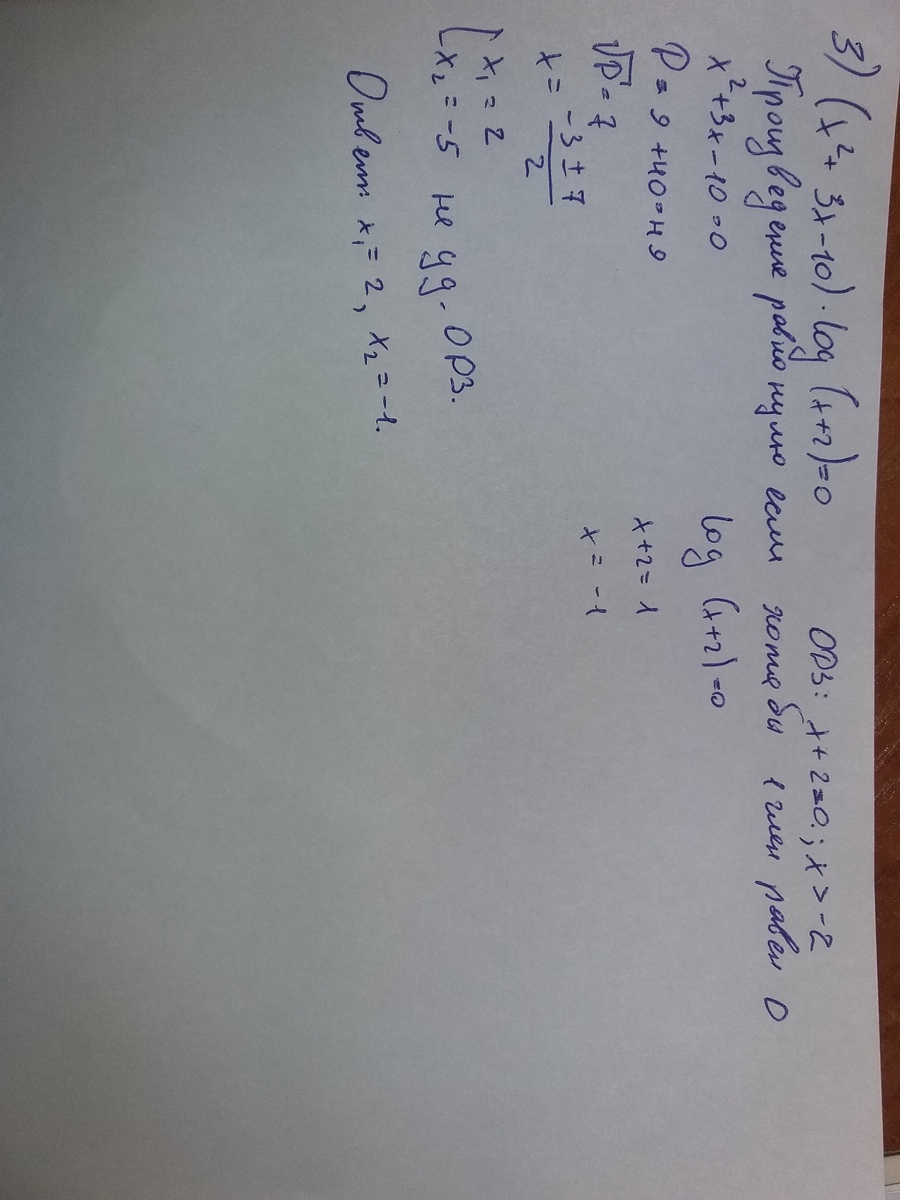 3) (x² + 3x-10)·log (x+2)=0 ОДЗ: x+2=0.; x>-2
Произведение равно нулю если хотя бы 1 член равен 0
x²+3x-10=0 log (x+2)=0
D= 9 +40=49 x+2= 1
√D= 7 x= -1
x= -3±7/2
[ x₁ = 2
x₂ = -5 не уд. ОДЗ.
Ответ: x₁= 2, x₂ =-1.